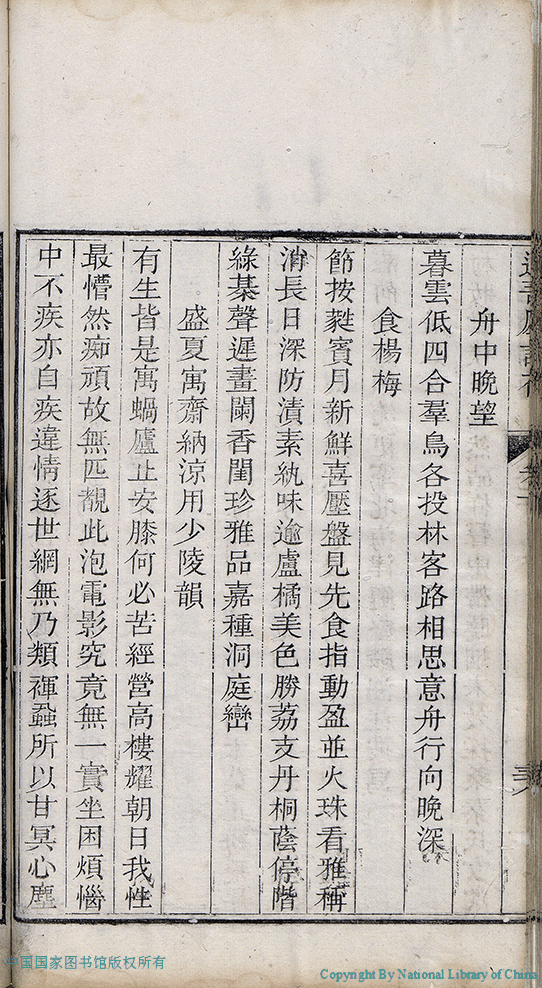 舟中晚望
暮雲低四合羣鳥各投林客路相思意舟行向晚深
食楊梅
節按蕤賓月新鮮喜壓盤見先食指動盈並火珠看雅稱
消長日深防漬素紈味逾盧橘美色勝荔支丹桐蔭停階
綠棊聲遲畫闌香閨珍雅品嘉種洞庭巒
盛夏寓齋納涼用少陵韻
有生皆是寓蝸廬止安膝何必苦經營高樓耀朝日我性
最懵然痴頑故無匹覩此泡電影究竟無一實坐困煩惱
中不疾亦自疾違情逐世網無乃類褌蝨所以甘冥心塵
中国国家图书馆版权所有
Copyright By National Library of China